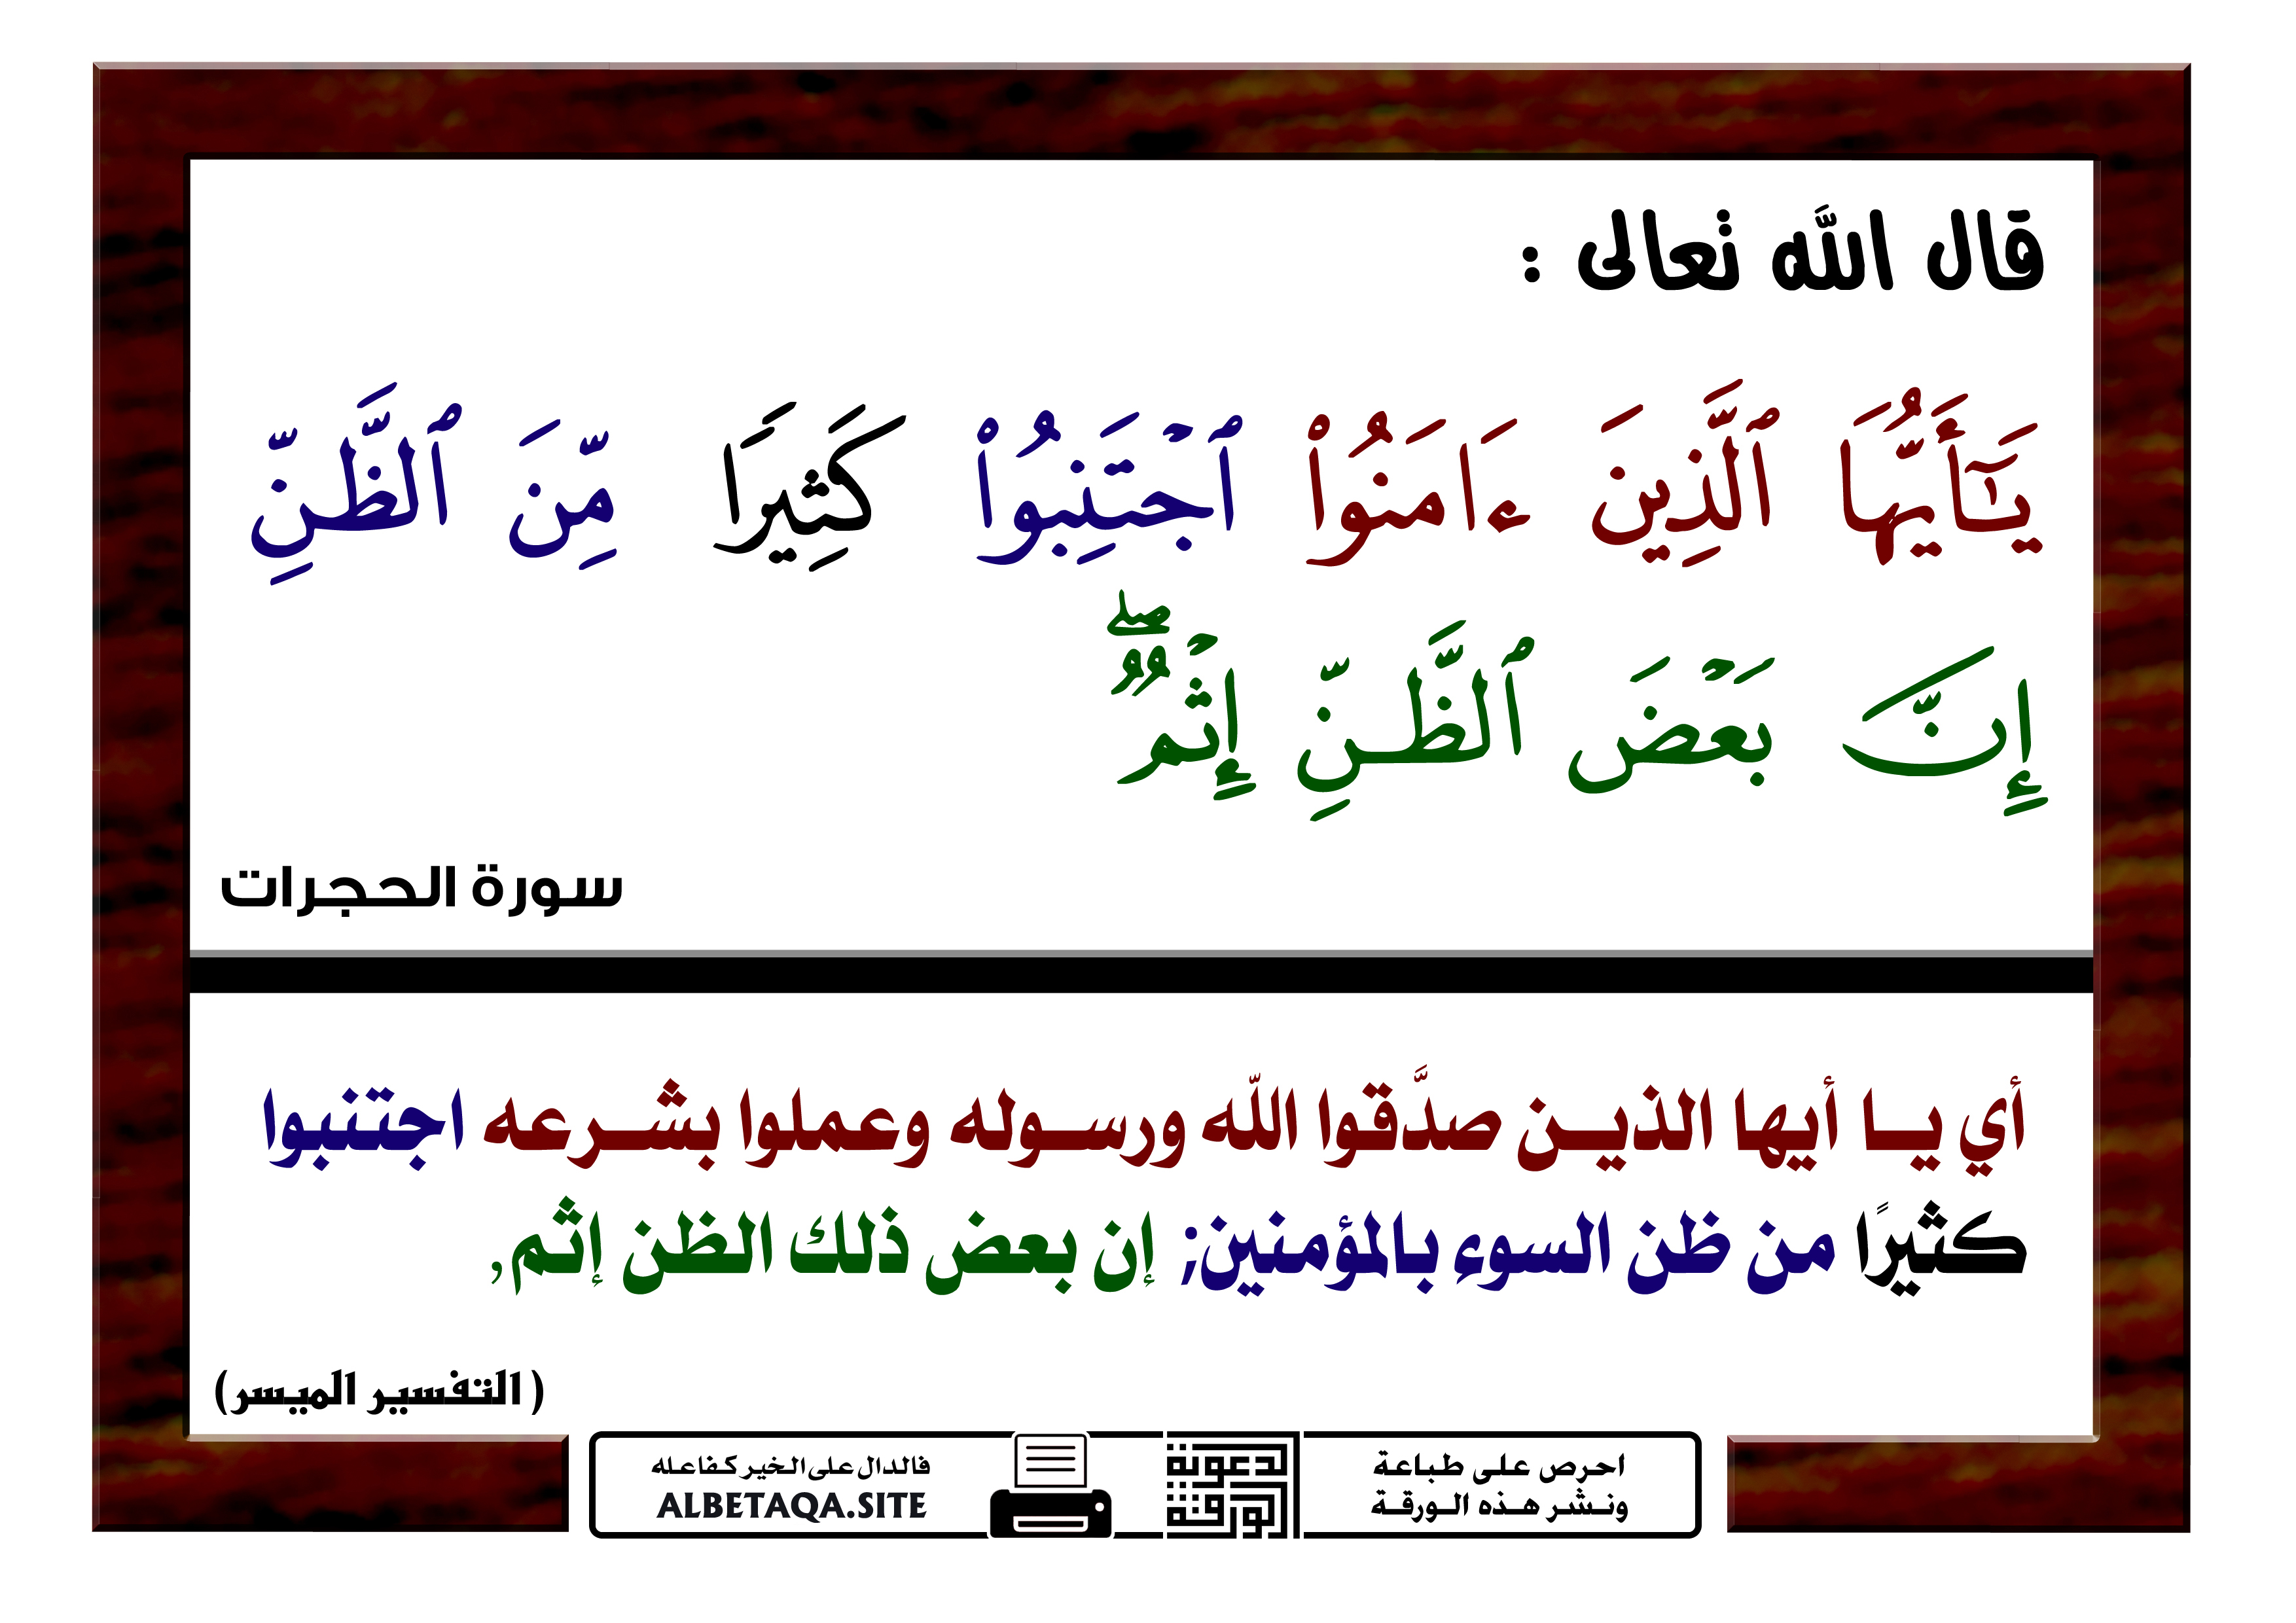 قال الله تعالى :
يَٰٓأَيُّهَا ٱلَّذِينَ ءَامَنُوا۟ ٱجْتَنِبُوا۟ كَثِيرًا مِّنَ ٱلظَّنِّ
إِنَّ بَعْضَ ٱلظَّنِّ إِثْمٌۖ
سورة الحجرات
أي يــا أيها الذيــن صدَّقوا الله ورســوله وعملوا بشــرعه اجتنبوا
كثيرًا من ظن السوء بالمؤمنين; إن بعض ذلك الظن إثم,
( التفسير الميسر)
احرص على طباعة
ونشر هذه الورقة
الدعوية
الورقة
فالدال على الخير كفاعله
ALBETAQA.SITE